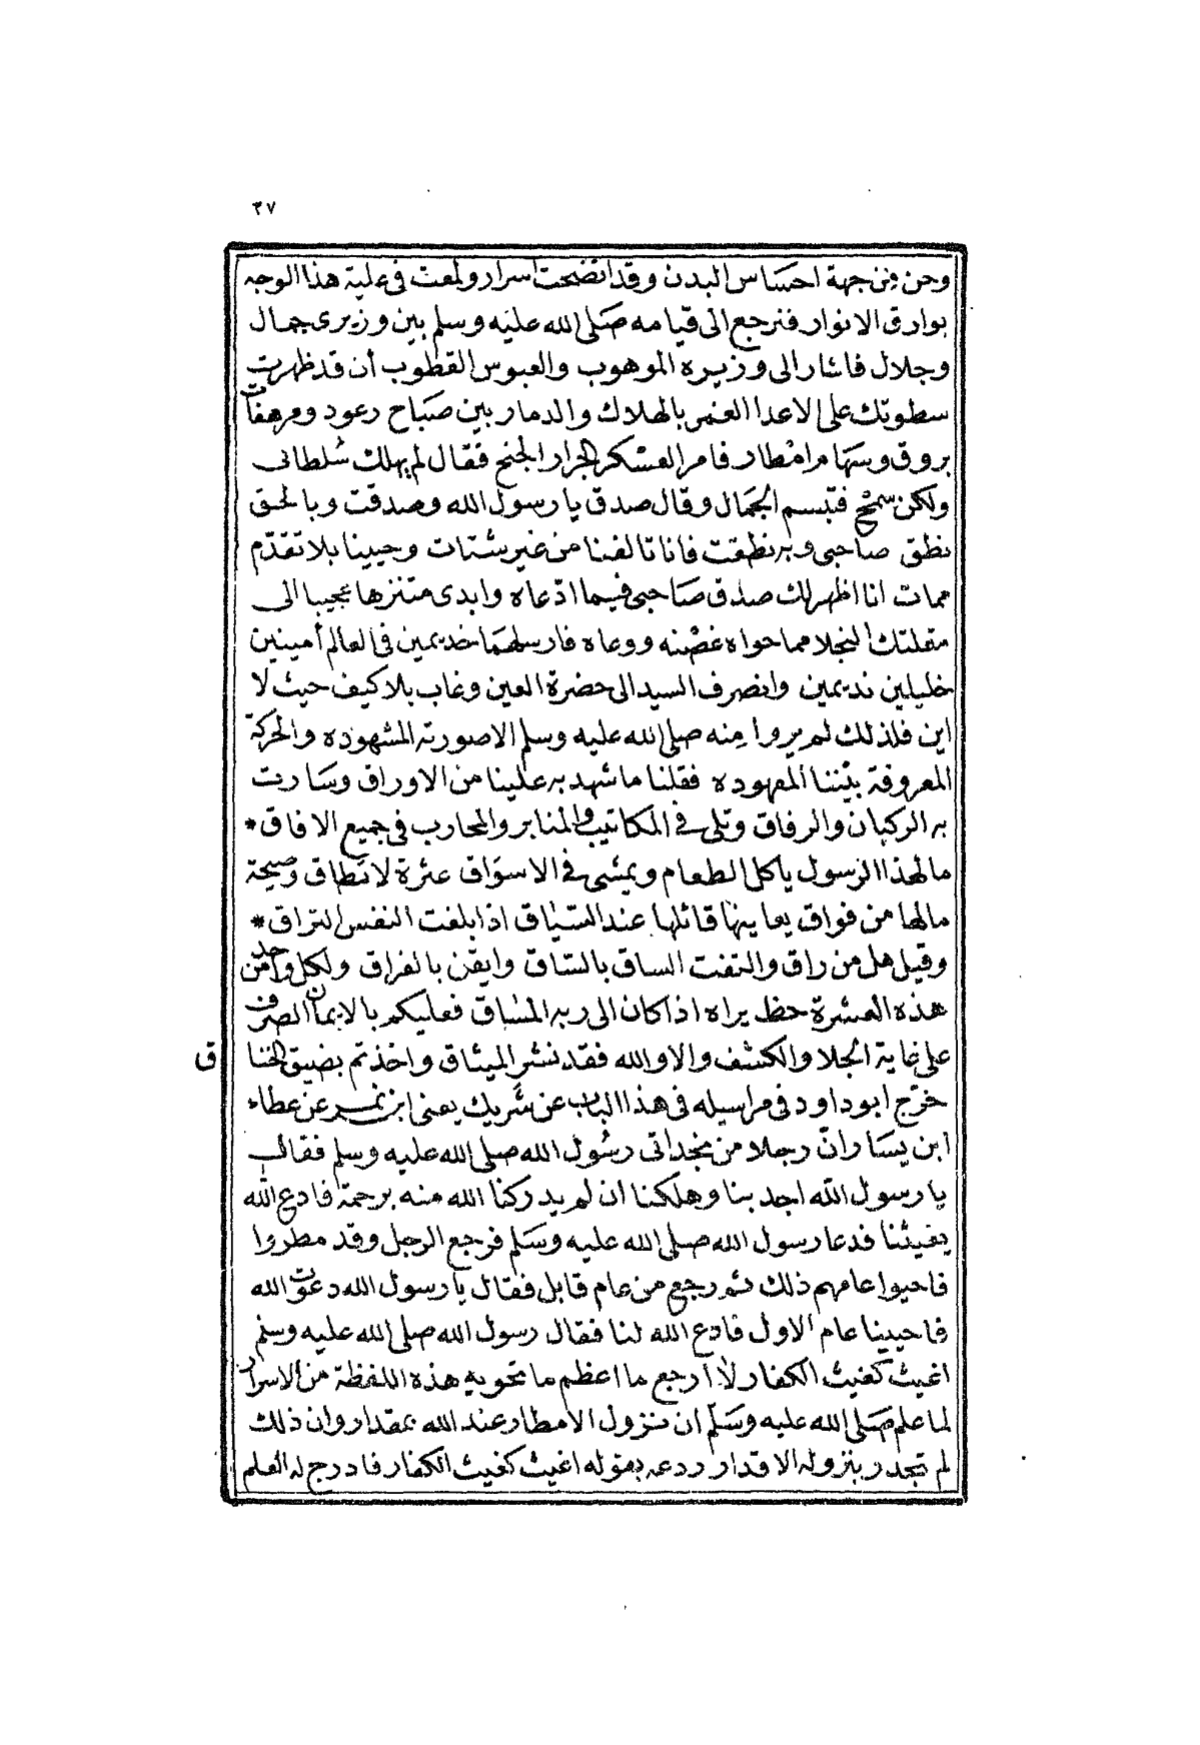 ٢٧
وحن من جهة احساس البدن وقد اتضحت اسرار ولمعت فى علية هذا الوجه
بوارق الانوار فنرجع الى قيامه صلى الله عليه وسلم بين وزيرى جمال
وجلال فاشار الى وزيره الموهوب والعبوس القطوب أن قد ظهرت
سطوتك على الاعدا الغمر بالهلاك والدمار بين صباح رعود ومرهفات
بروق وسهام امطار فامر العسكر الجرار الجنح فقال لم يهلك سلطانى
ولكن سمح فتبسم الجمال وقال صدق يا رسول الله وصدقت وبالحق
نطق صاحبى وبه نطقت فانا تالفنا من غير شتات وحيينا بلا تقدّم
ممات انا اظهر لك صدق صاحبى فيما ادّعاه وابدى متنزها عجيبا الى
مقلتك النجلا مما حواه غصنه ووعاه فارسلهما خديمين فى العالم أمينين
خليلين نديمين وانصرف السيد الى حضرة العين وغاب بلا كيف حيث لا
اين فلذلك لم يروا منه صلى الله عليه وسلم الا صورته المشهوده والحركة
المعروفة بيننا المعهوده فقلنا ما شهد به علينا من الاوراق وسارت
به الركبان والرفاق وتلى فى المكاتيب والمنابر والمحارب فى جميع الافاق *
ما لهذا الرسول ياكل الطعام ويمشى فى الاسواق عثرة لا تطاق وصيحة
مالها من فواق يعاينها قائلها عند السياق اذا بلغت النفس التراق *
وقيل هل من راق والتفت الساق بالساق وايقن بالفراق ولكل واحد من
هذه العشرة حظ يراه اذا كان الى ربه المساق فعليكم بالايمان الصرف
على غاية الجلا والكشف والا والله فقد نشر الميثاق واخذتم بضيق الخنا
ق
خرّج ابو داود فى مراسيله فى هذا الباب عن شريك يعنى ابن نمر عن عطاء
ابن يسار انّ رجلا من نجد اتى رسول الله صلى الله عليه وسلم فقال
يا رسول الله اجدبنا وهلكنا ان لم يدركنا الله منه برحمة فادع الله
يغيثنا فدعا رسول الله صلى الله عليه وسلم فرجع الرجل وقد مطروا
فاحيوا عامهم ذلك ثم رجع من عام قابل فقال يا رسول الله دعوت الله
فاحيينا عام الاول فادع الله لنا فقال رسول الله صلى الله عليه وسلم
اغيث كغيث الكفار لا ارجع ما اعظم ما تحويه هذه اللفظة من الاسرار
لما علم صلى الله عليه وسلم ان نزول الامطار عند الله بمقدار وان ذلك
لم تجدر بنزوله الاقدار ردعه بقوله اغيث كغيث الكفار فادرج له العلم